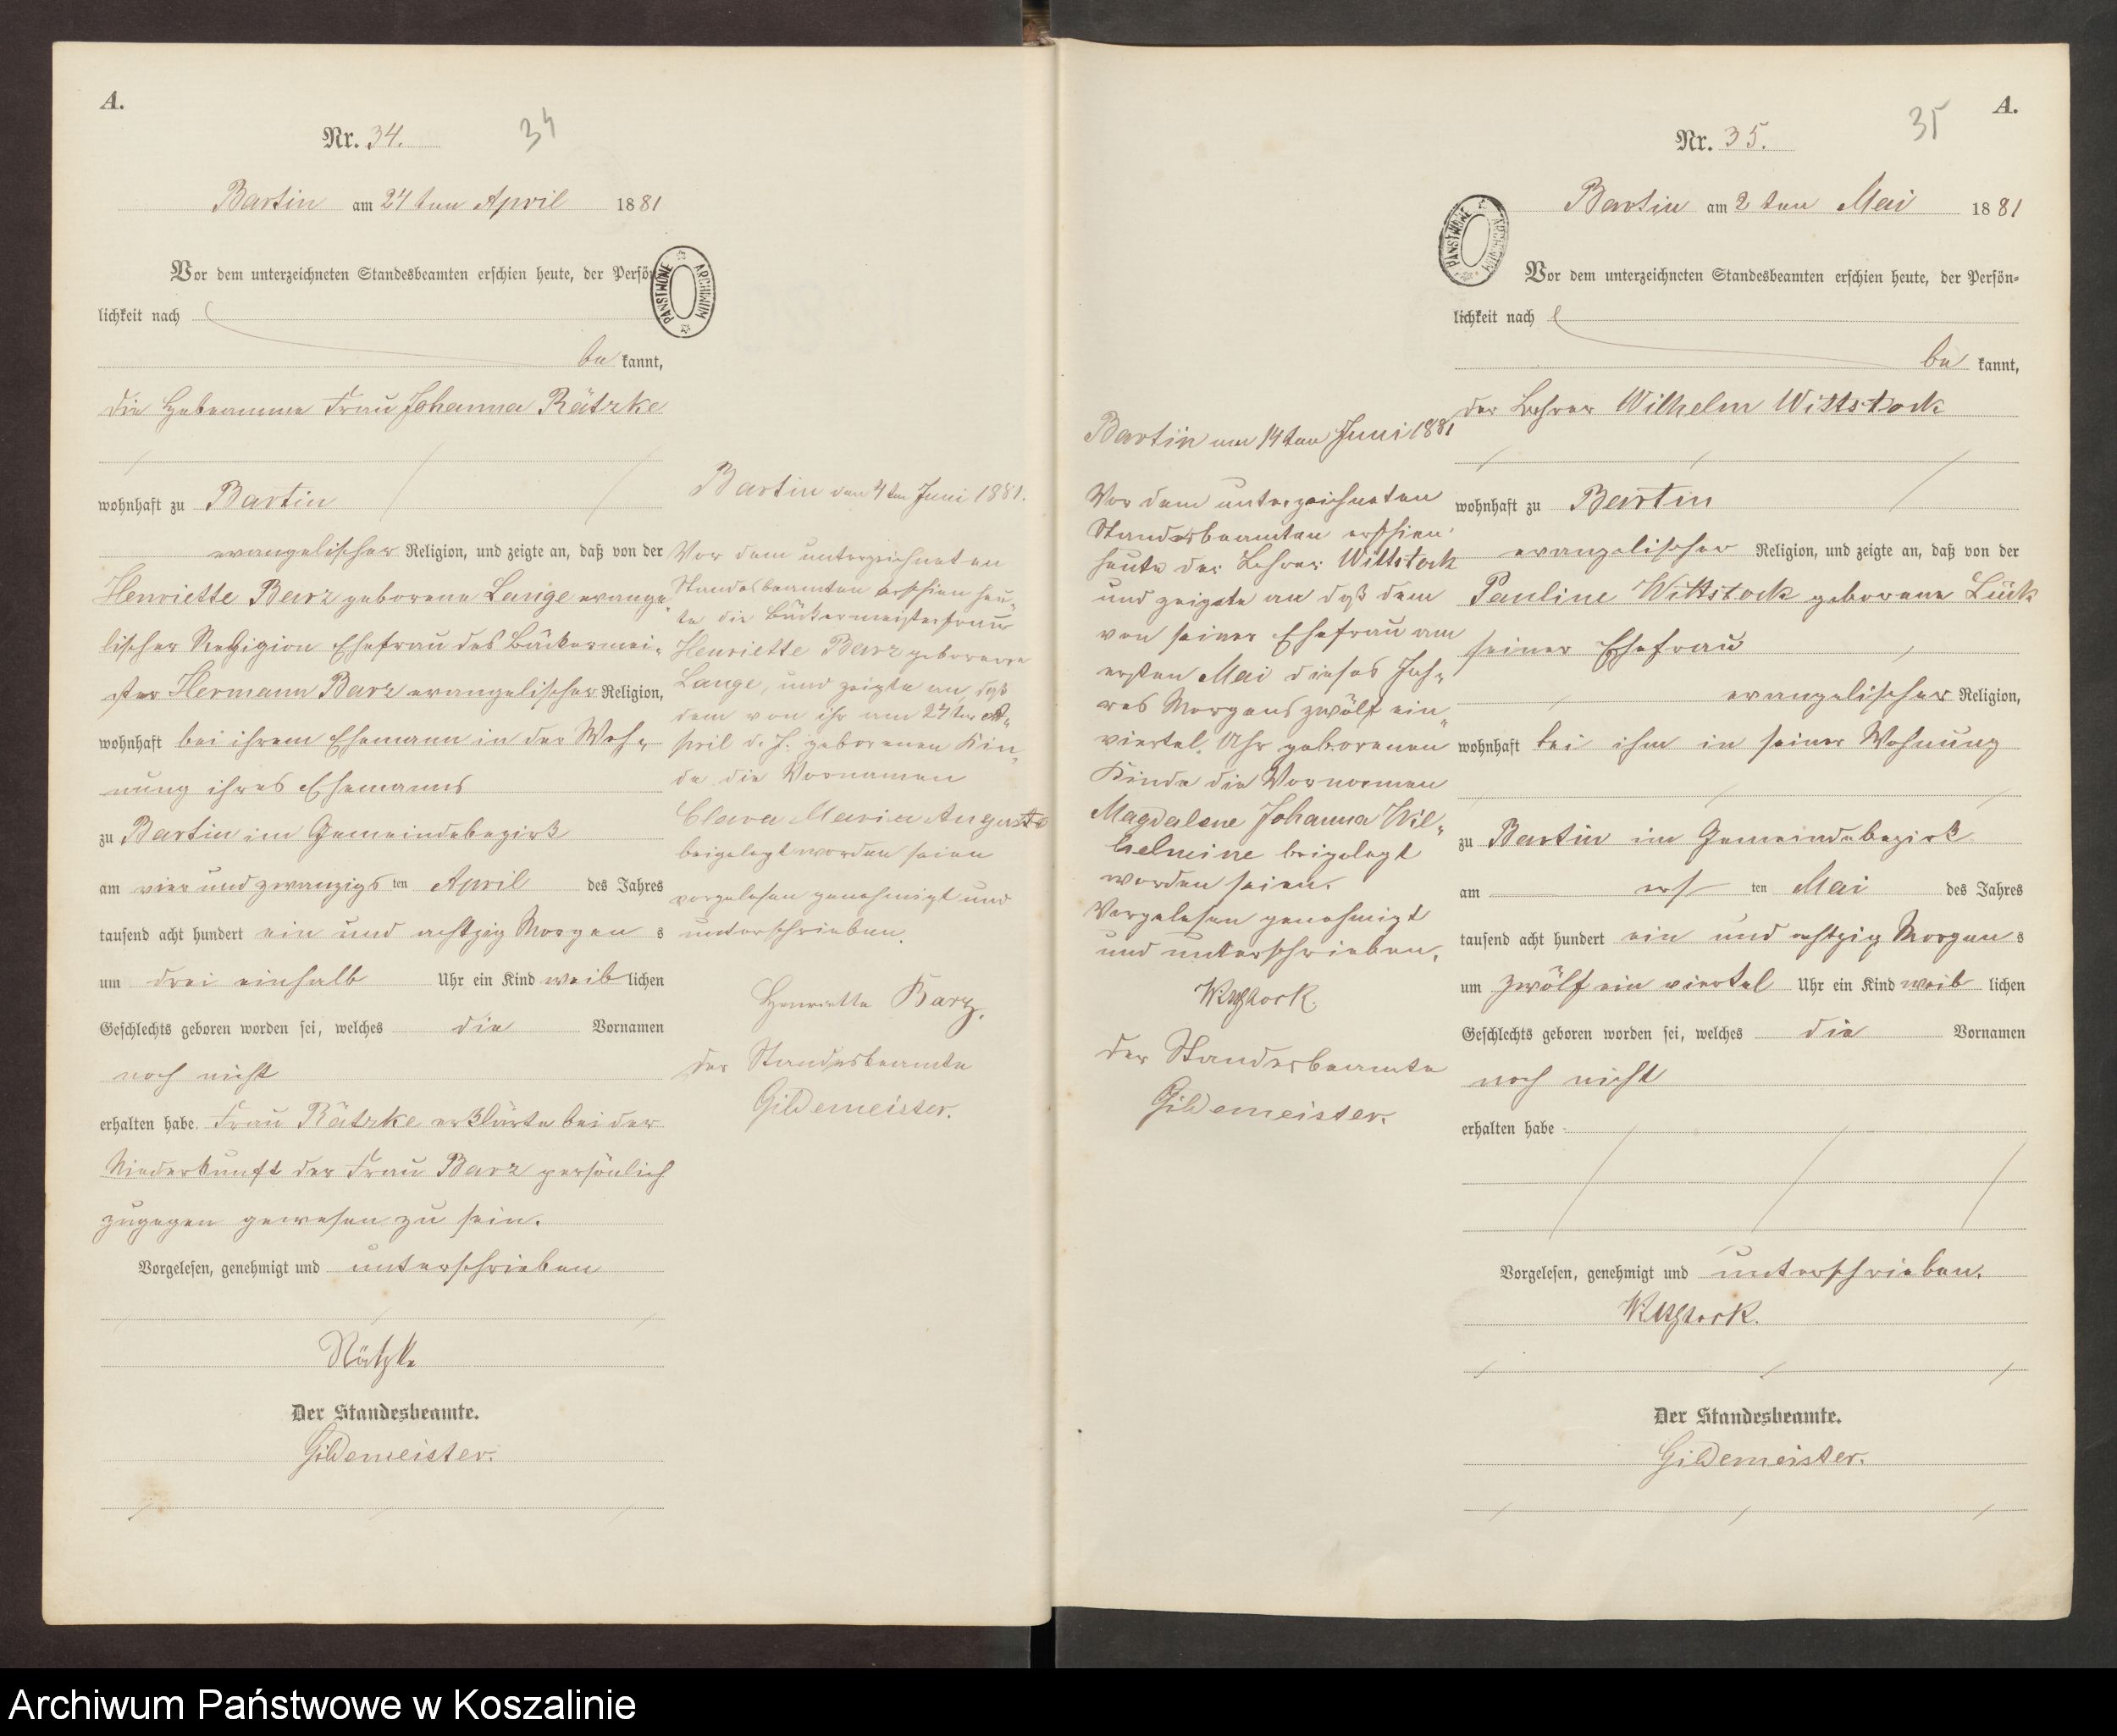 A.
Nr. 34.
34
Bartin am 24 ten April 1881
Vor dem unterzeichneten Standesbeamten erschien heute, der Persön
lichkeit nach
be kannt,
die Hebeamme Frau Johanna Rätzke
wohnhaft zu Bartin
evangelischer Religion, und zeigte an, daß von der
Henriette Barz geborene Lange evange
lischer Religion Ehefrau des Bäckermei-
ster Hermann Barz evangelischer Religion,
wohnhaft bei ihrem Ehemann in der Woh-
nung ihres Ehemanns
zu Bartin im Gemeindebezirk
am vier und zwanzigs ten April des Jahres
tausend acht hundert ein und achtzig Morgen s
um drei einhalb Uhr ein Kind weib lichen
Geschlechts geboren worden sei, welches die Vornamen
noch nicht
erhalten habe. Frau Rätzke erklärte bei der
Niederkunft der Frau Barz persönlich
zugegen gewesen zu sein.
Vorgelesen, genehmigt und unterschrieben
Rätzke
Der Standesbeamte.
Gildemeister.
PANSTWOWE ARCHIWUM
Bartin den 4ten Juni 1881.
Vor dem unterzeichneten
Standesbeamten erschien heu-
te die Bäckermeisterfrau
Henriette Barz geborene
Lange, und zeigte an, daß
dem von ihr am 24ten A-
pril d. J. geborenen Kin-
de die Vornamen
Clara Maria Auguste
beigelegt worden seien
vorgelesen genehmigt und
unterschrieben.
Henriette Barz.
der Standesbeamte
Gildemeister.
Bartin am 14ten Juni 1881
Vor dem unterzeichneten
Standesbeamten erschien
heute der Lehrer Wittstock
und zeigte an daß dem
von seiner Ehefrau am
ersten Mai dieses Jah-
res Morgens zwölf ein-
viertel Uhr geborenen
Kinde die Vornamen
Magdalene Johanna Wil-
helmine beigelegt
worden seien.
Vorgelesen genehmigt
und unterschrieben.
Wittstock
der Standesbeamte
Gildemeister.
A.
Nr. 35.
35
PANSTWOWE ARCHIWUM
Bartin am 2 ten Mai 1881
Vor dem unterzeichneten Standesbeamten erschien heute, der Persön-
lichkeit nach
be kannt,
der Lehrer Wilhelm Wittstock
wohnhaft zu Bartin
evangelischer Religion, und zeigte an, daß von der
Pauline Wittstock geborene Lück
seiner Ehefrau
evangelischer Religion,
wohnhaft bei ihm in seiner Wohnung
zu Bartin im Gemeindebezirk
am ers ten Mai des Jahres
tausend acht hundert ein und achtzig Morgen s
um zwölf ein viertel Uhr ein Kind weib lichen
Geschlechts geboren worden sei, welches die Vornamen
noch nicht
erhalten habe
Vorgelesen, genehmigt und unterschrieben.
Wittstock.
Der Standesbeamte.
Gildemeister.
Archiwum Państwowe w Koszalinie